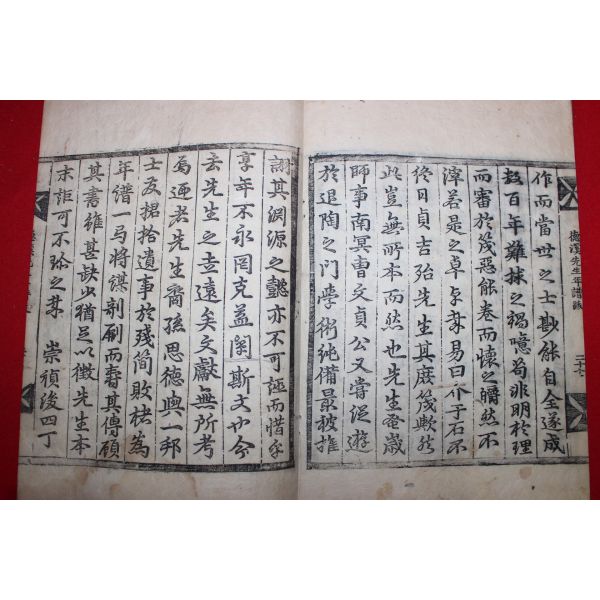 作而當世之士尠能自全遂成
數百年難捄之禍噫苟非明於理
而審於幾惡能卷而懷之皭然不
滓若是之卓卓㢤易曰介子石不
終日貞吉殆先生其庶幾歟然
此豈無所本而然也先生蚤歲
師事南冥曹文貞公又嘗從遊
於退陶之門學術純備最被推
詡其淵源之懿亦不可誣而惜乎
享年不永罔克益闡斯文也今
去先生之世遠矣文獻無所考
爲迺者先生裔孫思德與一邦
士友捃拾遺事於殘簡敗楮爲
年譜一弓將謀剞劂而壽其傳顧
其書雖甚缺少猶足以徵先生本
末詎可不珍之㢤 崇禎後四丁
德溪先生年譜跋